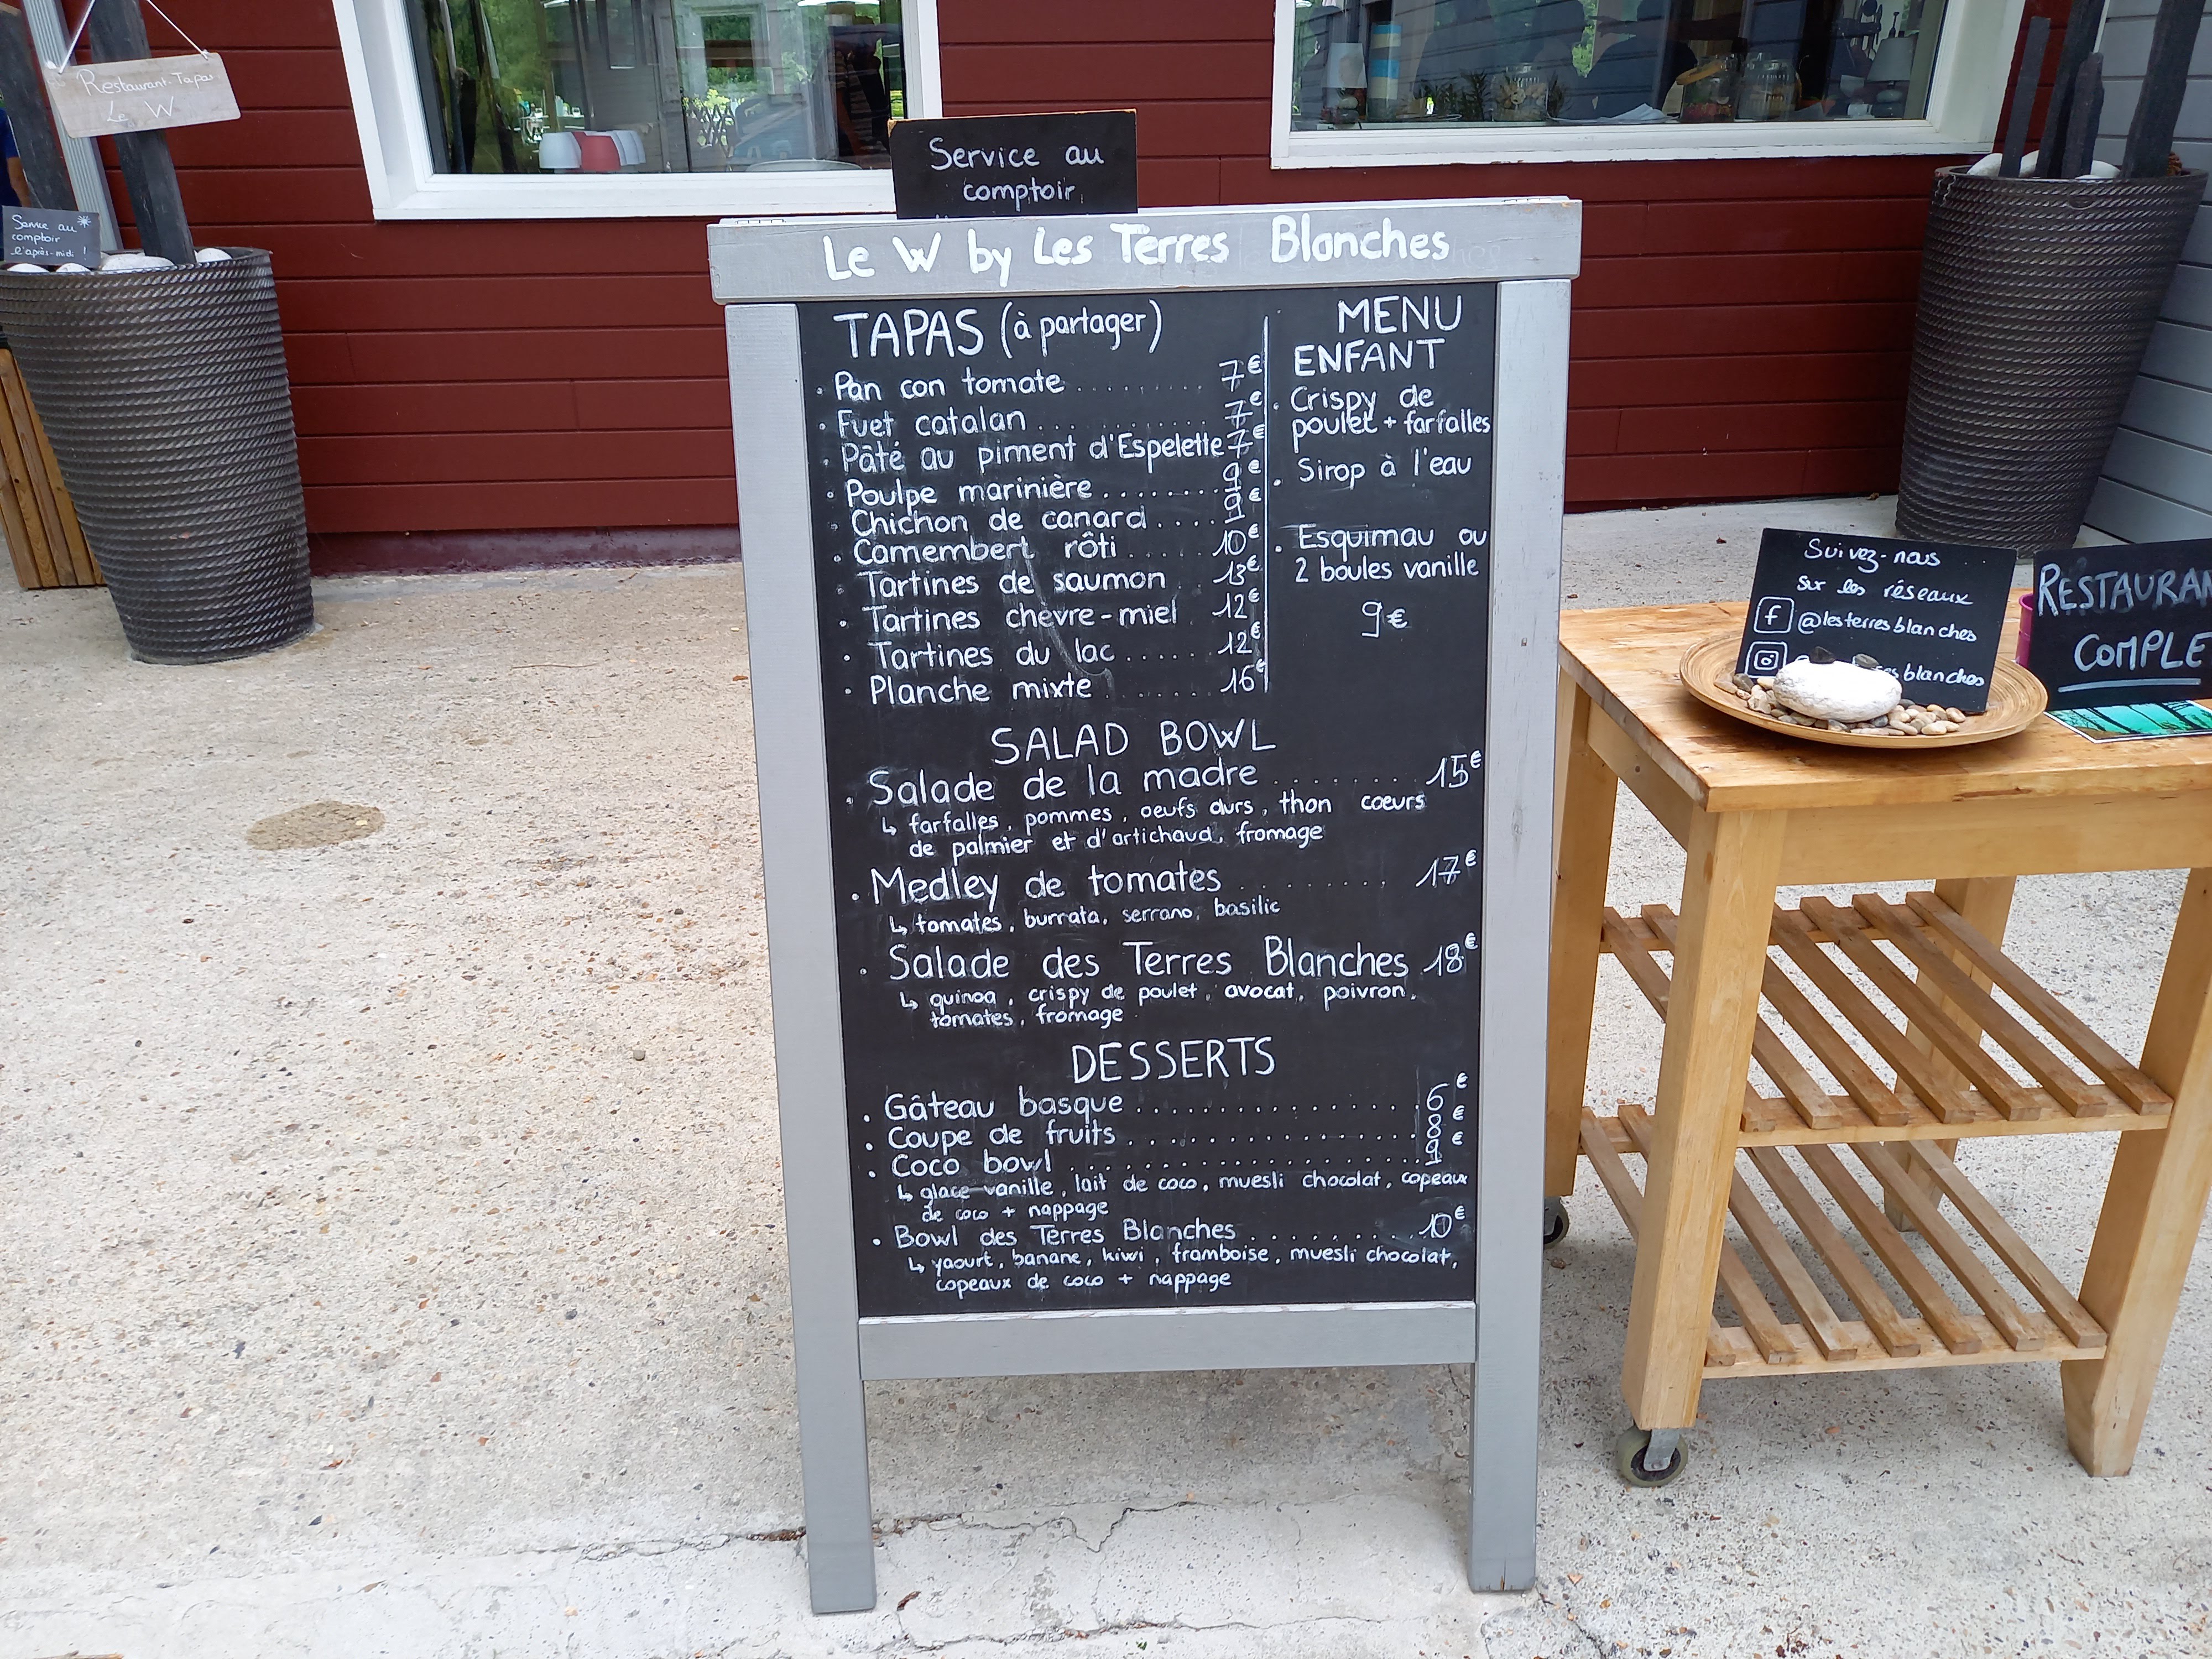 Restaurant-Tapas
Le W
Service au
comptoir
l'après-midi !
Service au
comptoir
Le W by Les Terres Blanches
TAPAS (à partager)
. Pan con tomate ......... 7€
. Fuet catalan ......... 7€
. Pâté au piment d'Espelette 7€
. Poulpe marinière ........ 9€
. Chichon de canard .... 9€
. Camembert rôti ..... 10€
Tartines de saumon . 13€
. Tartines chèvre-miel . 12€
. Tartines du lac ..... 12€
. Planche mixte ....... 16€
MENU
ENFANT
. Crispy de
poulet + farfalles
. Sirop à l'eau
. Esquimau ou
2 boules vanille
9€
SALAD BOWL
. Salade de la madre ........ 15€
↳ farfalles, pommes, oeufs durs, thon coeurs
de palmier et d'artichaud, fromage
. Medley de tomates ........ 17€
↳ tomates, burrata, serrano, basilic
. Salade des Terres Blanches 18€
↳ quinoa, crispy de poulet, avocat, poivron,
tomates, fromage
DESSERTS
. Gâteau basque ............... 6€
. Coupe de fruits ................ 8€
. Coco bowl .................... 9€
↳ glace vanille, lait de coco, muesli chocolat, copeaux
de coco + nappage
. Bowl des Terres Blanches ............ 10€
↳ yaourt, banane, kiwi, framboise, muesli chocolat,
copeaux de coco + nappage
Suivez-nous
sur les réseaux
@lesterresblanches
@ es blanches
RESTAURAN
COMPLE